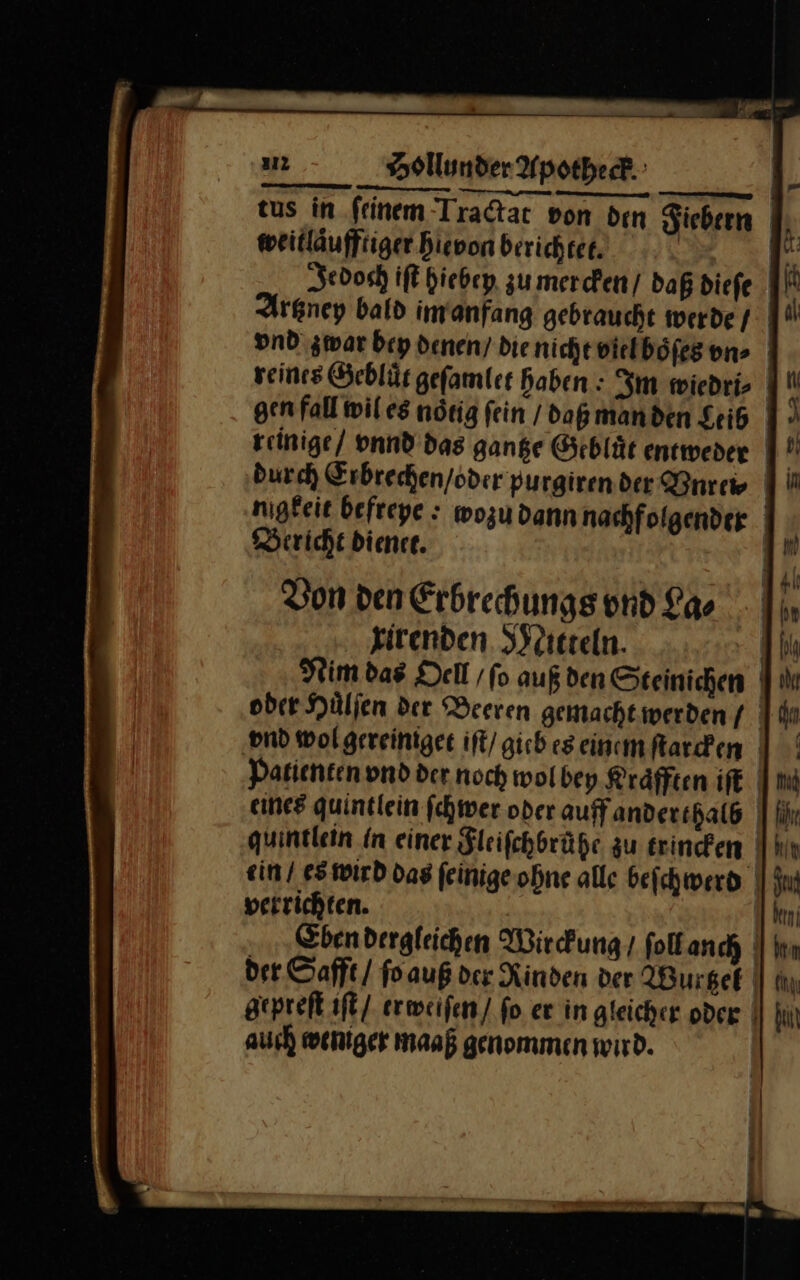 112 Hollunder Apotheck.
tus in ſeinem Tractat von den Fiebern
weitlaͤufftiger hievon berichtet.
Jedoch iſt hiebey zu mercken / daß dieſe
Artzney bald im anfang gebraucht werde /
vnd zwar bey denen / die nicht viel boͤſes vn⸗
reines Gebluͤt geſamlet haben : Im wiedri⸗
gen fall wil es noͤtig ſein / daß man den Leib
reinige / vnnd das gantze Gebluͤt entweder
durch Erbrechen / oder purgiren der Vnrei⸗
nigkeit befreye : wozu dann nachfolgender
Bericht dienet.
Von den Erbrechungs vnd La⸗
xirenden Mitteln.
Nim das Oell / ſo auß den Steinichen
oder Huͤlſen der Beeren gemacht werden /
vnd wol gereiniget iſt / gieb es einem ſtarcken
Patienten vnd der noch wol bey Kraͤfften iſt
eines quintlein ſchwer oder auff anderthalb
quintlein in einer Fleiſchbruͤhe zu trincken
ein / es wird das ſeinige ohne alle beſchwerd
verrichten.
Eben dergleichen Wirckung / ſoll anch
der Safft / ſo auß der Rinden der Wurtzel
gepreſt iſt / erweiſen / ſo er in gleicher oder
auch weniger maaß genommen wird.